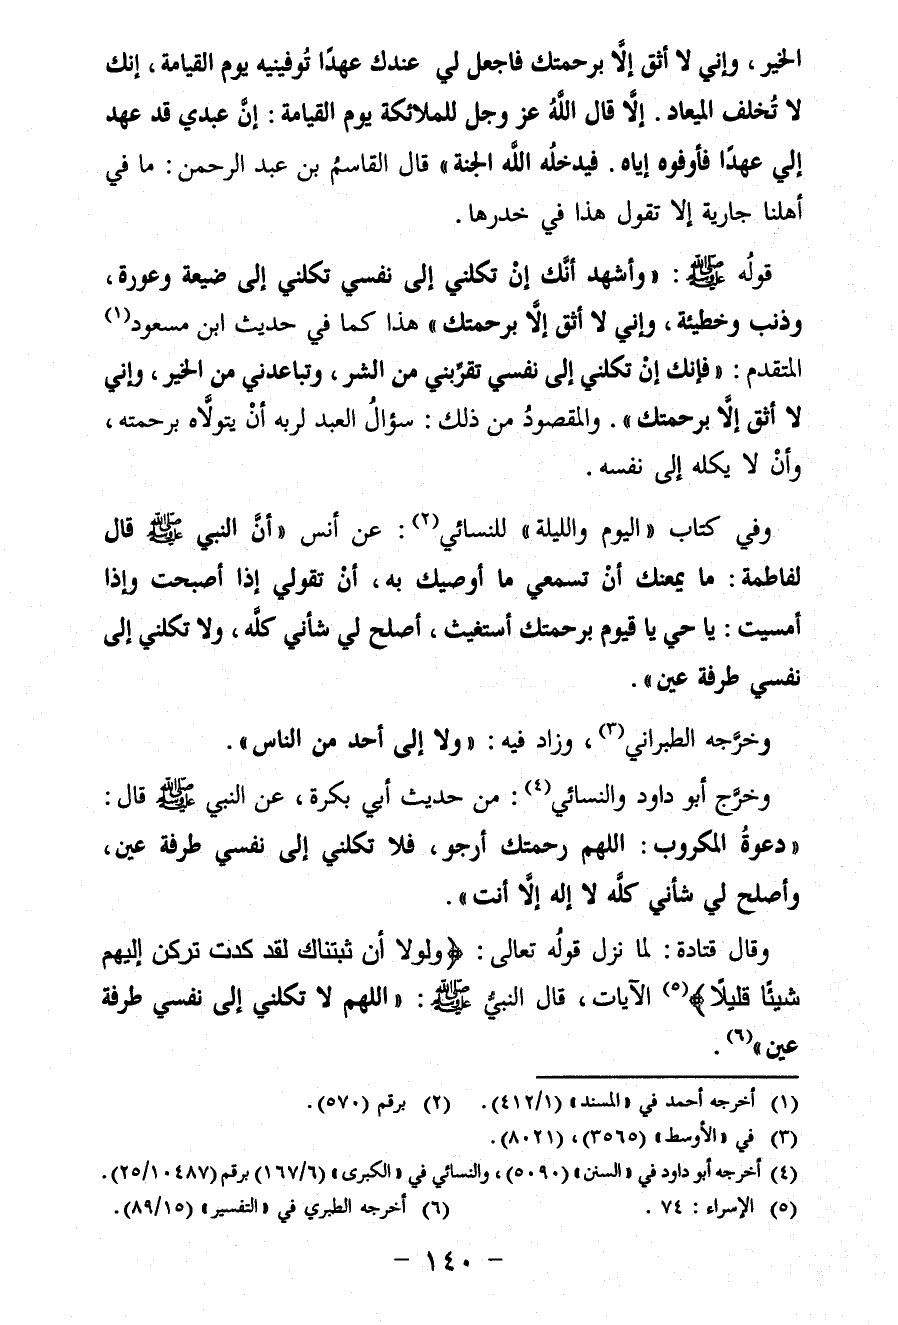 الخير ، وإني لا أثق إلَّا برحمتك فاجعل لي عندك عهدًا تُوفينيه يوم القيامة ، إنك
لا تُخلف الميعاد . إلَّا قال اللَّهُ عز وجل للملائكة يوم القيامة : إنَّ عبدي قد عهد
إلي عهدًا فأوفوه إياه . فيدخلُه اللَّه الجنة » قال القاسمُ بن عبد الرحمن : ما في
أهلنا جارية إلا تقول هذا في خدرها .
قولُه ﷺ : « وأشهد أنَّك إنْ تكلني إلى نفسي تكلني إلى ضيعة وعورة ،
وذنب وخطيئة ، وإني لا أثق إلَّا برحمتك » هذا كما في حديث ابن مسعود(١)
المتقدم : « فإنك إنْ تكلني إلى نفسي تقرِّبني من الشر ، وتباعدني من الخير ، وإني
لا أثق إلَّا برحمتك » . والمقصودُ من ذلك : سؤالُ العبد لربه أنْ يتولَّاه برحمته ،
وأنْ لا يكله إلى نفسه .
وفي كتاب « اليوم والليلة » للنسائي(٢) : عن أنس « أنَّ النبي ﷺ قال
لفاطمة : ما يمنعك أنْ تسمعي ما أوصيك به ، أنْ تقولي إذا أصبحت وإذا
أمسيت : يا حي يا قيوم برحمتك أستغيث ، أصلح لي شأني كلَّه ، ولا تكلني إلى
نفسي طرفة عين » .
وخرَّجه الطبراني(٣) ، وزاد فيه : « ولا إلى أحد من الناس » .
وخرَّج أبو داود والنسائي(٤) : من حديث أبي بكرة ، عن النبي ﷺ قال :
« دعوةُ المكروب : اللهم رحمتك أرجو ، فلا تكلني إلى نفسي طرفة عين ،
وأصلح لي شأني كلَّه لا إله إلَّا أنت » .
وقال قتادة : لما نزل قولُه تعالى : ﴿ولولا أن ثبتناك لقد كدت تركن إليهم
شيئًا قليلًا﴾(٥) الآيات ، قال النبيُّ ﷺ : « اللهم لا تكلني إلى نفسي طرفة
عين »(٦) .
(١) أخرجه أحمد في « المسند » (٤١٢/١). (٢) برقم (٥٧٠).
(٣) في «الأوسط» (٣٥٦٥)، (٨٠٢١).
(٤) أخرجه أبو داود في « السنن » (٥٠٩٠) ، والنسائي في « الكبرى » (١٦٧/٦) برقم (٢٥/١٠٤٨٧).
(٥) الإسراء : ٧٤ . (٦) أخرجه الطبري في « التفسير » (٨٩/١٥).
- ١٤٠ -